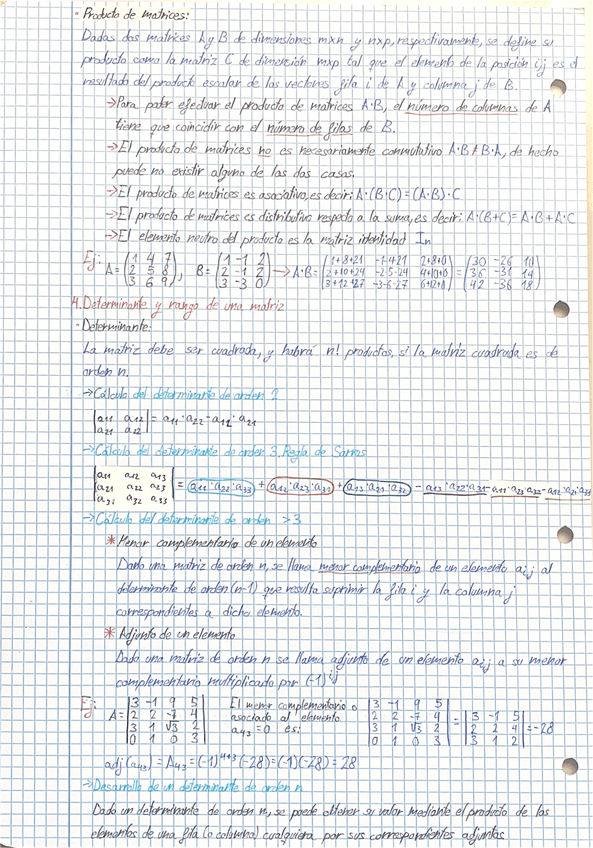 · Producto de matrices:
Dadas dos matrices A y B de dimensiones m×n y n×p, respectivamente, se define su
producto como la matriz C de dimensión m×p tal que el elemento de la posición i,j es el
resultado del producto escalar de los vectores fila i de A y columna j de B.
→Para poder efectuar el producto de matrices A·B, el número de columnas de A
tiene que coincidir con el número de filas de B.
→El producto de matrices no es necesariamente conmutativo A·B≠B·A, de hecho
puede no existir alguno de los dos casos.
→El producto de matrices es asociativo, es decir: A·(B·C)=(A·B)·C
→El producto de matrices es distributivo respecto a la suma, es decir: A·(B+C)=A·B+A·C
→El elemento neutro del producto es la matriz identidad In
Ej: A=(1 4 7 / 2 5 8 / 3 6 9), B=(1 -1 2 / 2 -1 2 / 3 -3 0) → A·B=(1+8+21 -1-4-21 2+8+0 / 2+10+24 -2-5-24 4+10+0 / 3+12+27 -3-6-27 6+12+0) = (30 -26 10 / 36 -31 14 / 42 -36 18)
4. Determinante y rango de una matriz
· Determinante:
La matriz debe ser cuadrada, y habrá n! productos, si la matriz cuadrada es de
orden n.
→Cálculo del determinante de orden 2
|a11 a12 / a21 a22| = a11·a22-a12·a21
→Cálculo del determinante de orden 3. Regla de Sarrus
|a11 a12 a13 / a21 a22 a23 / a31 a32 a33| = a11·a22·a33 + a12·a23·a31 + a13·a21·a32 - a13·a22·a31 - a11·a23·a32 - a12·a21·a33
→Cálculo del determinante de orden >3
* Menor complementario de un elemento
Dada una matriz de orden n, se llama menor complementario de un elemento ai,j al
determinante de orden (n-1) que resulta suprimir la fila i y la columna j
correspondientes a dicho elemento.
* Adjunto de un elemento
Dada una matriz de orden n se llama adjunto de un elemento ai,j a su menor
complementario multiplicado por (-1)^i+j
Ej: A=|3 -1 9 5 / 2 2 -7 4 / 3 1 √3 2 / 0 1 0 3| El menor complementario asociado al elemento a43=0 es: |3 -1 9 5 / 2 2 -7 4 / 3 1 √3 2 / 0 1 0 3| = |3 -1 5 / 2 2 4 / 3 1 2| = -28
adj(a43)=A43=(-1)^4+3 (-28)=(-1)(-28)=28
→Desarrollo de un determinante de orden n
Dado un determinante de orden n, se puede obtener su valor mediante el producto de los
elementos de una fila (o columna) cualquiera por sus correspondientes adjuntos